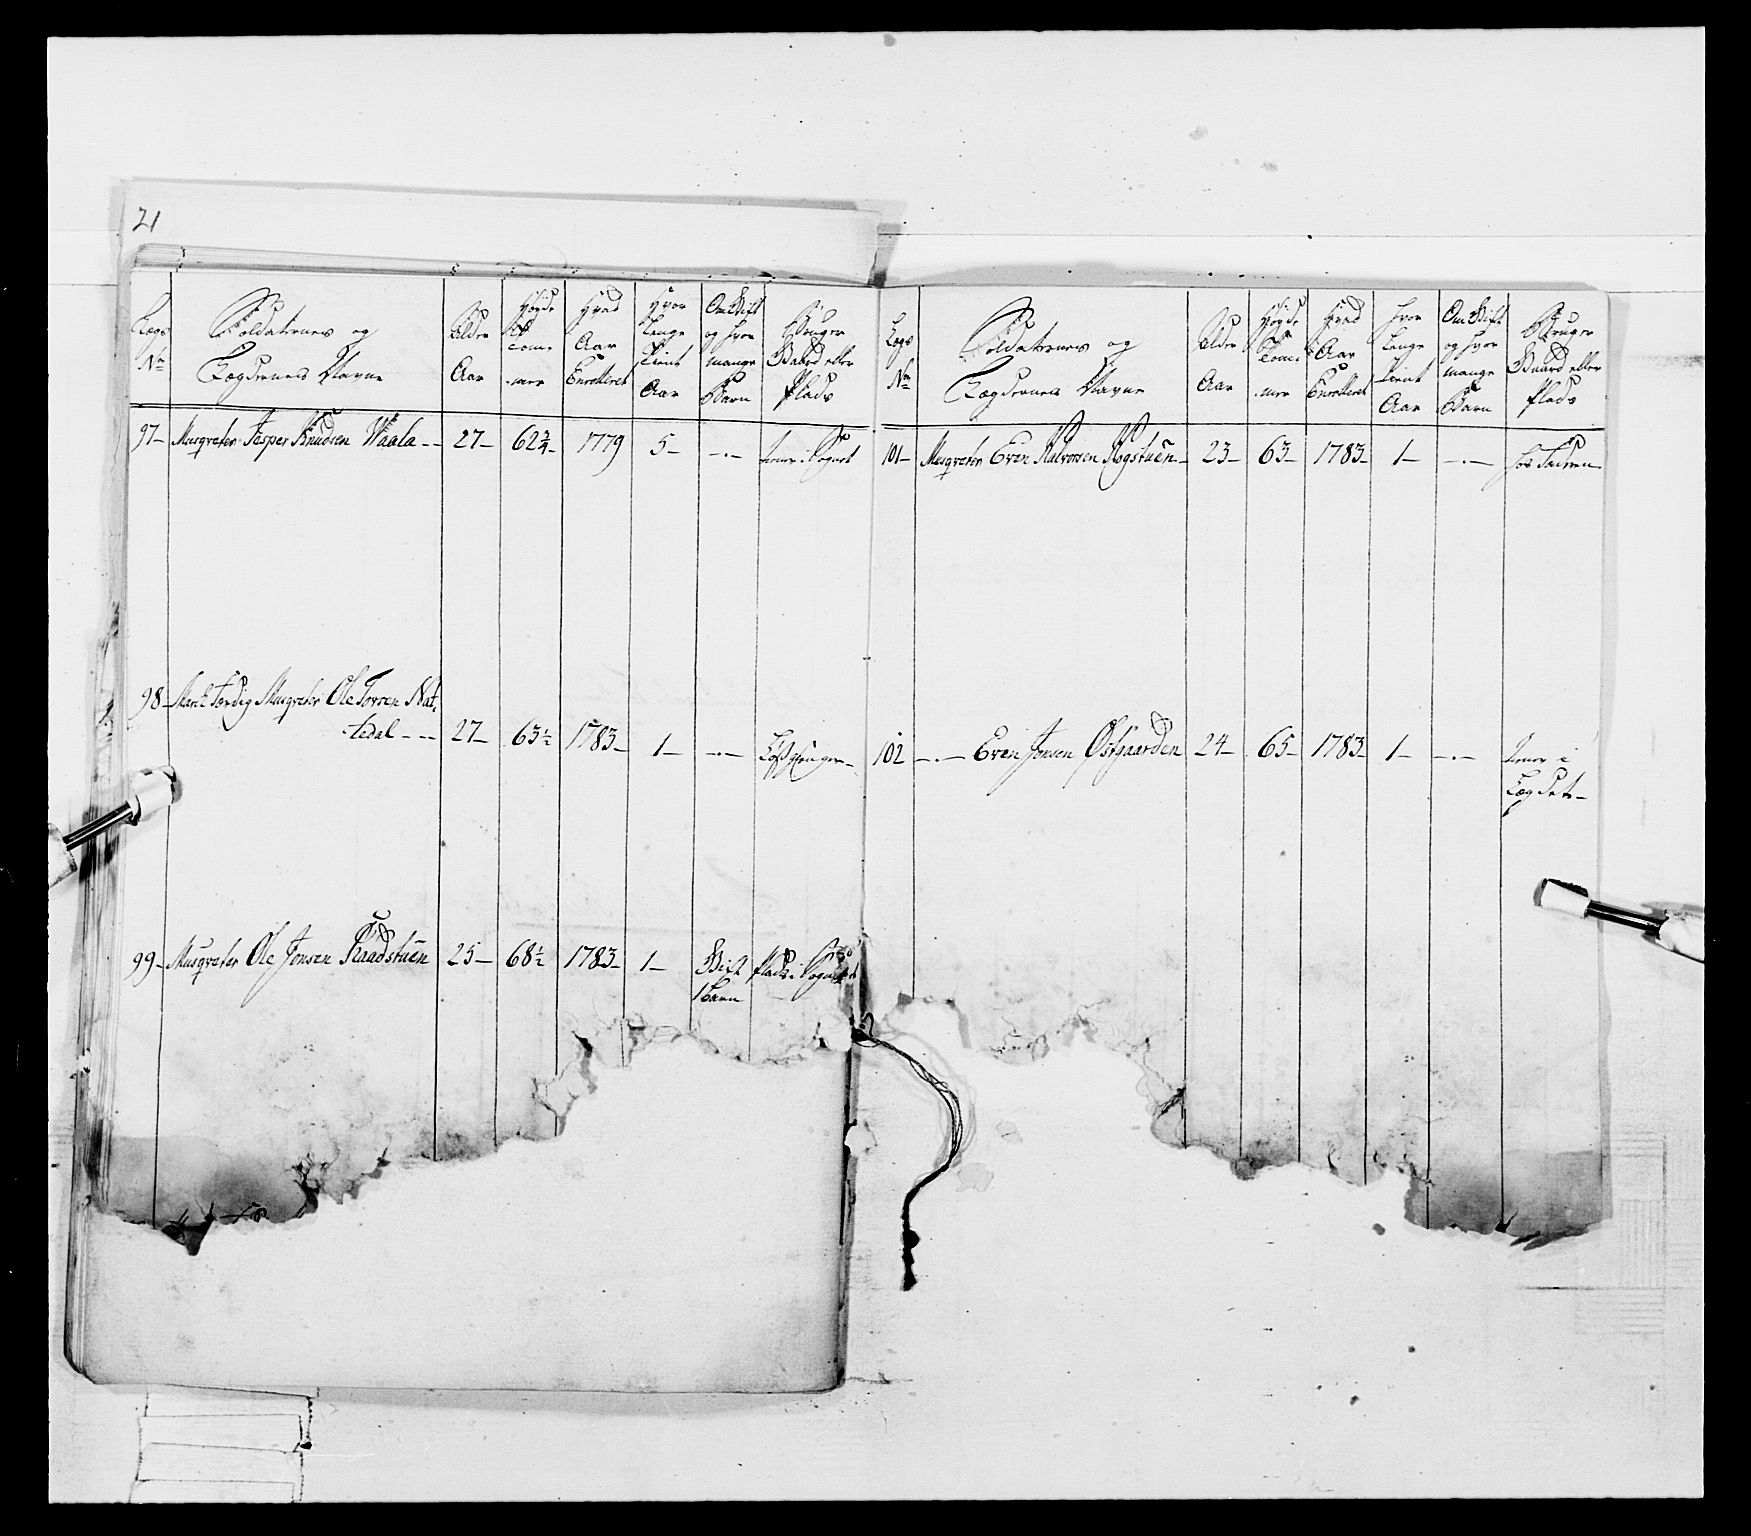 21
Lægs No
Soldaternes og Lægdernes Navne
Alder Aar
Høyde Tommer
Hvad Aar Enrolleret
Hvor Længe Tient Aar
Om Gift og hvor mange Barn
Bruger Gaard eller Plads
97- Musqveter Jesper Knudsen Waala -- 27- 62¾- 1779 5- -.-
98- Musqveter Ole Torsen Nat,
tedal --- 27- 63½ 1783- 1- -.-
99- Musqveter Ole Jonsen Raadstuen 25- 68½ 1783- 1- Gift Plads i Sognet
1 Barn
Legs No
Soldaternes og Lægdernes Navne
Alder Aar
Høyde Tommer
Hvad Aar Enrolleret
Hvor Længe Tient Aar
Om Gift og hvor mange Barn
Bruger Gaard eller Plads
101- Musqveter Even Halvorsen Rogstuen- 23- 63- 1783- 1- -.- hos Faderen
102 -.- Even Jonsen Østgaarden 24- 65- 1783- 1- -.- i
Lægdet-